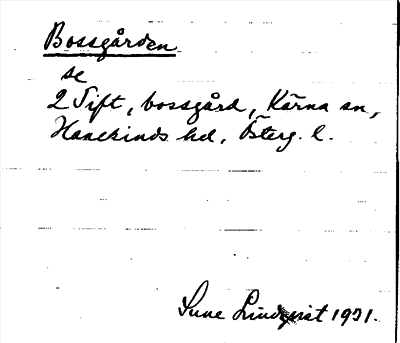 Bossgården
se
2 Tift, bossgård, Kärna sn,
Hanekinds hd, Österg. l.
Sune Lindqvist 1931.